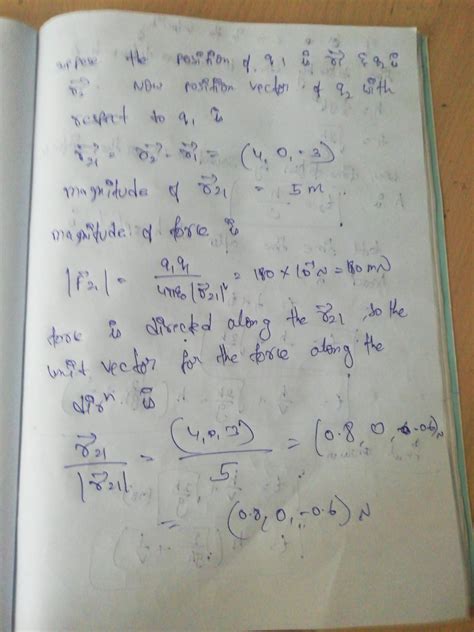 suppose the position of q₁ is r⃗₁ & q₂ is
r⃗₂. Now position vector of q₂ with
respect to q₁ is
r⃗₂₁ = r⃗₂ - r⃗₁ = (4, 0, -3)
magnitude of r⃗₂₁ = 5m
magnitude of force is
|F⃗₂₁| = q₁q₁ / 4πε₀|r⃗₂₁|² = 180 × 10 N = 180 mN
force is directed along the r⃗₂₁ so the
unit vector for the force along the
dirⁿ is
r⃗₂₁ / |r⃗₂₁| = (4, 0, 3) / 5 = (0.8, 0, -0.6) N
= (0.8, 0, -0.6) N